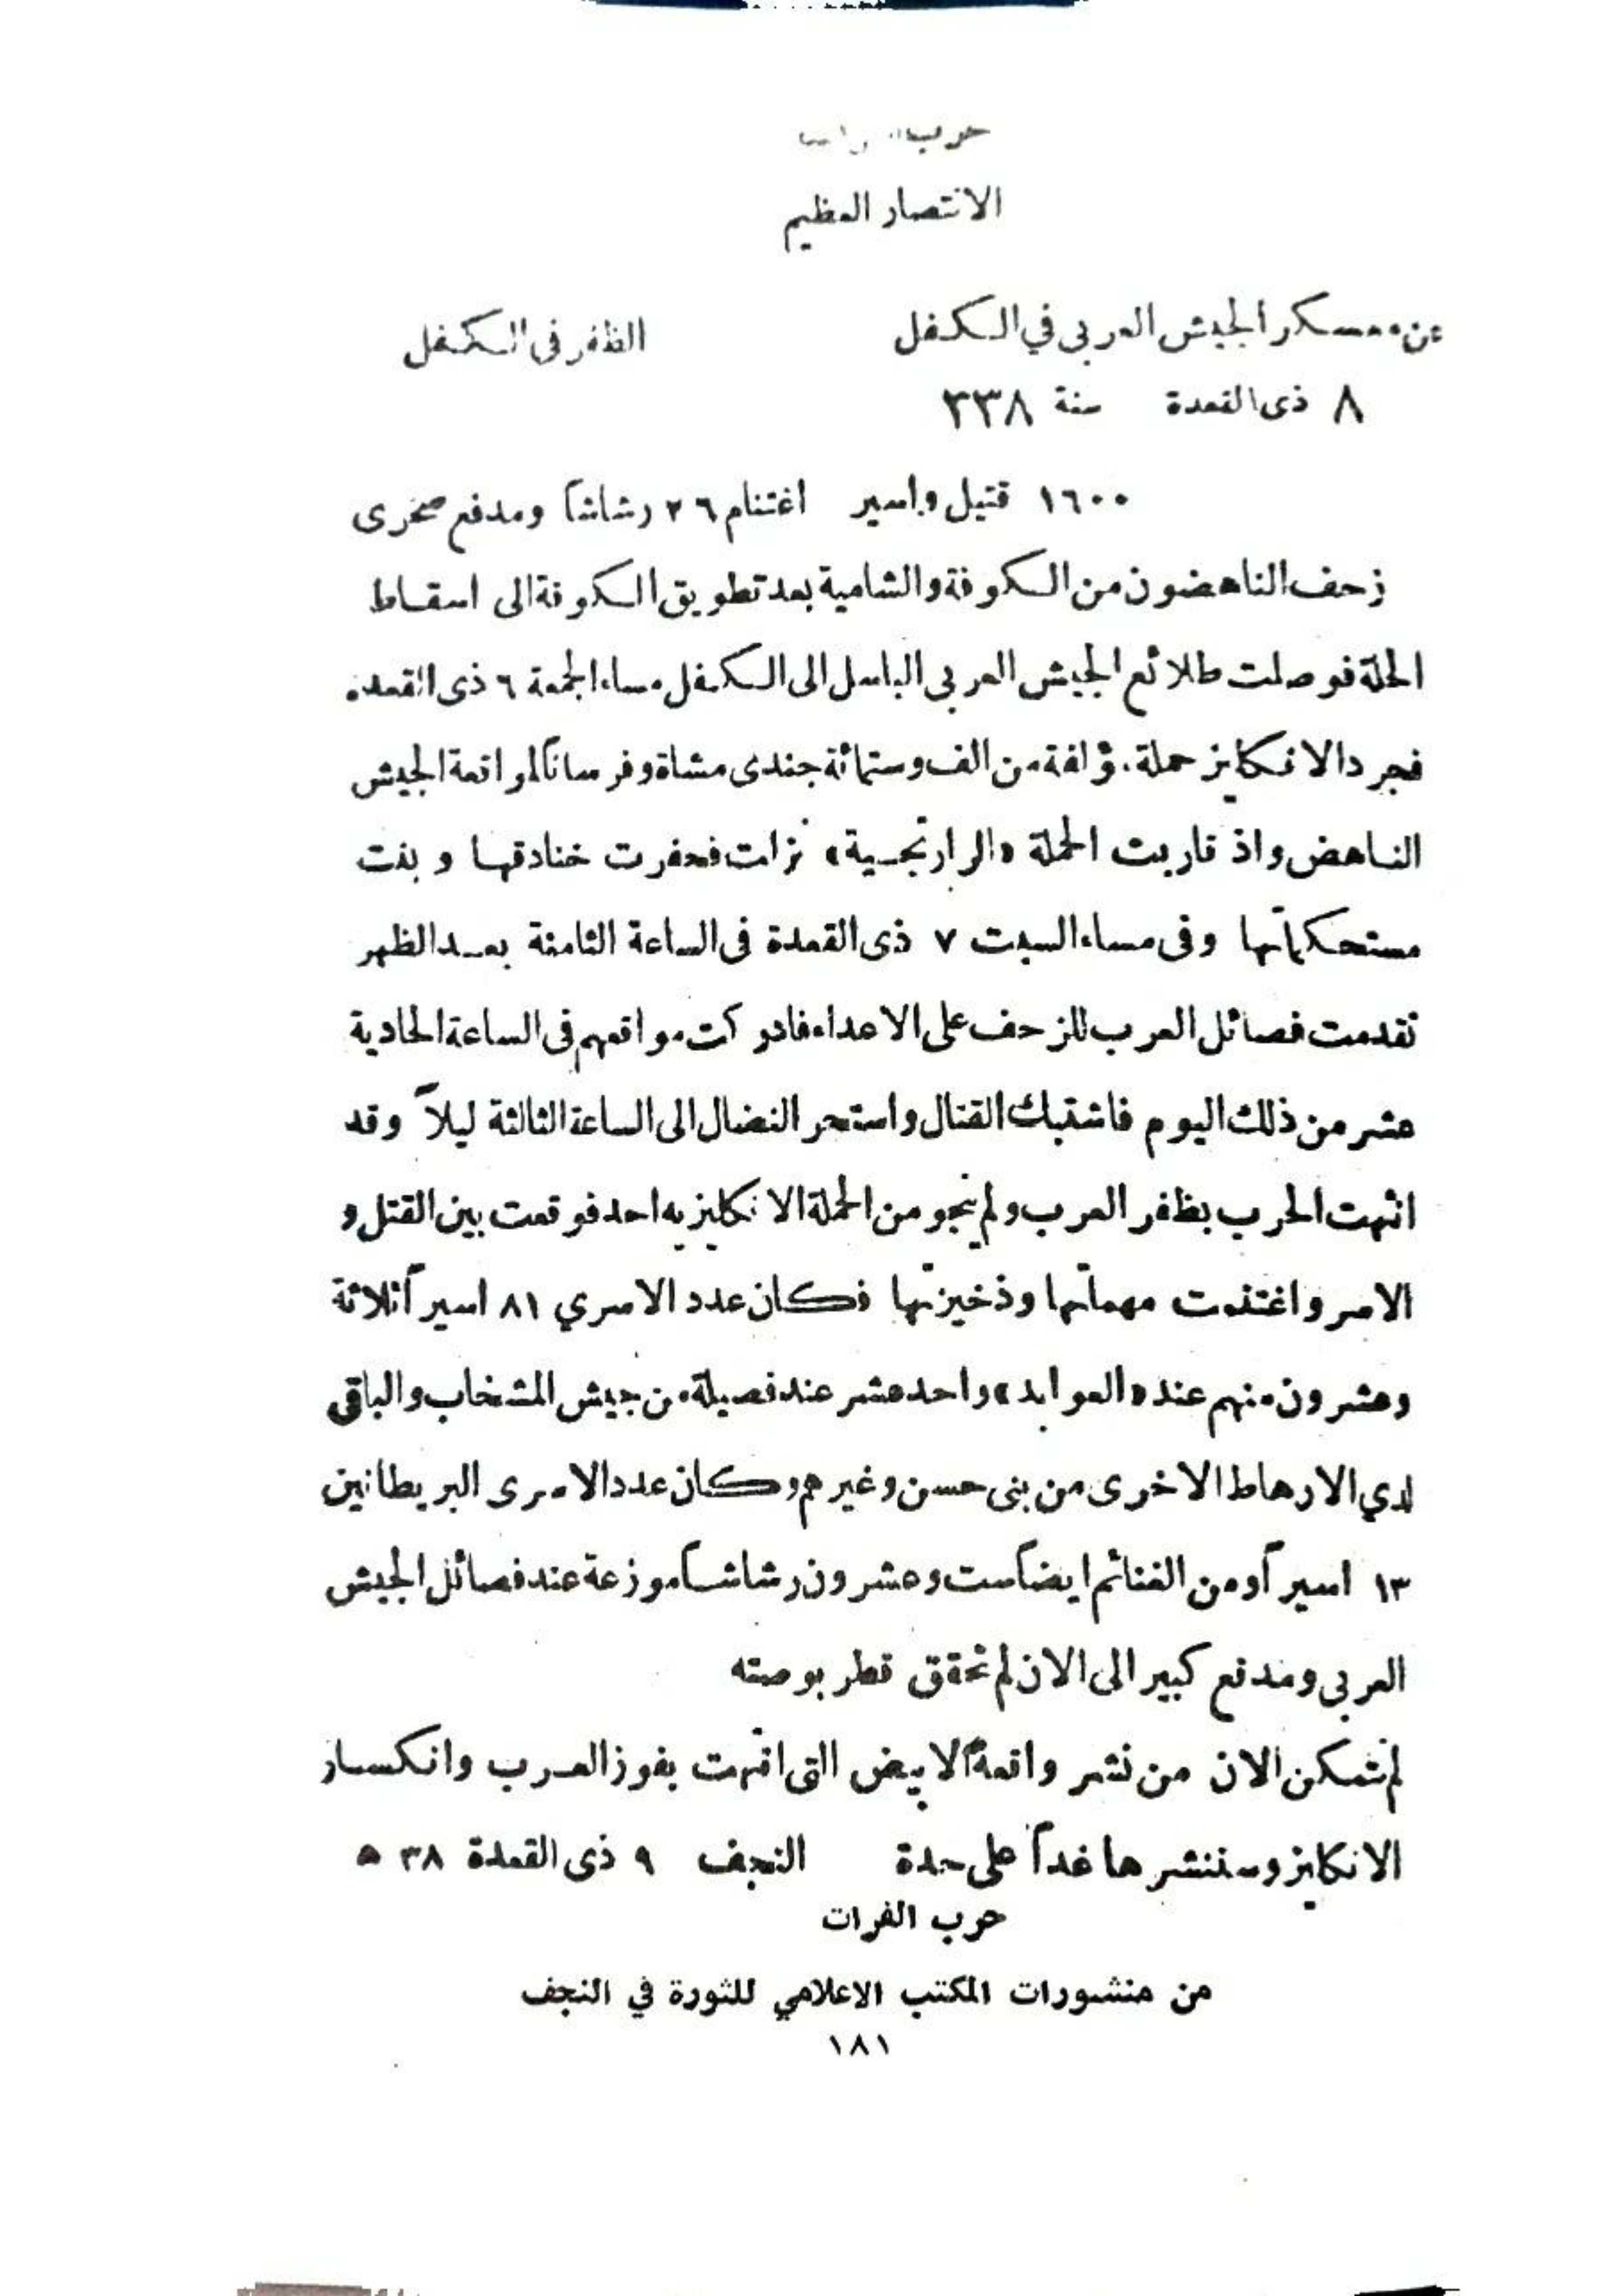 حرب
الانتصار العظيم
عن معسكر الجيش العربي في الكفل
الظفر فى الكفل
٨ ذى القعدة سنة ٣٣٨
١٦٠٠ قتيل واسير اغتنام ٢٦ رشاشاً ومدفع صخرى
زحف الناهضون من الكوفة والشامية بعد تطويق الكوفة الى اسقاط
الحلة فوصلت طلائع الجيش العربي الباسل الى الكفل مساء الجمعة ٦ ذى القعده
فجرد الانكليز حملة مؤلفة من الف وستمائة جندى مشاة وفرساناً لمواقعة الجيش
الناهض واذ قاربت الحملة «الرارنجية» نزلت فحفرت خنادقها وبنت
مستحكماتها وفى مساء السبت ٧ ذى القعدة فى الساعة الثامنة بعد الظهر
تقدمت فصائل العرب للزحف على الاعداء فادركت مواقعهم فى الساعة الحادية
عشر من ذلك اليوم فاشتبك القتال واستحر النضال الى الساعة الثالثة ليلاً وقد
انتهت الحرب بظفر العرب ولم ينجو من الحملة الانكليزيه احد فوقعت بين القتل و
الاسر واغتنمت مهماتها وذخيرتها فكان عدد الاسري ٨١ اسيراً ثلاثة
وعشرون منهم عند «العوابد» واحد عشر عند فصيلة من جيش المشخاب والباقى
لدي الارهاط الاخرى من بنى حسن وغيرهم وكان عدد الاسرى البريطانين
١٣ اسيراً ومن الغنائم ايضاً ست وعشرون رشاشاً موزعة عند فصائل الجيش
العربى ومدفع كبير الى الان لم تحقق قطر بوصته
لم نتمكن الان من نشر واقعة الابيض التى انتهت بفوز العرب وانكسار
الانكليز وسننشرها غداً على حدة النجف ٩ ذى القعدة ٣٨ ه
حرب الفرات
من منشورات المكتب الاعلامي للثورة في النجف
١٨١